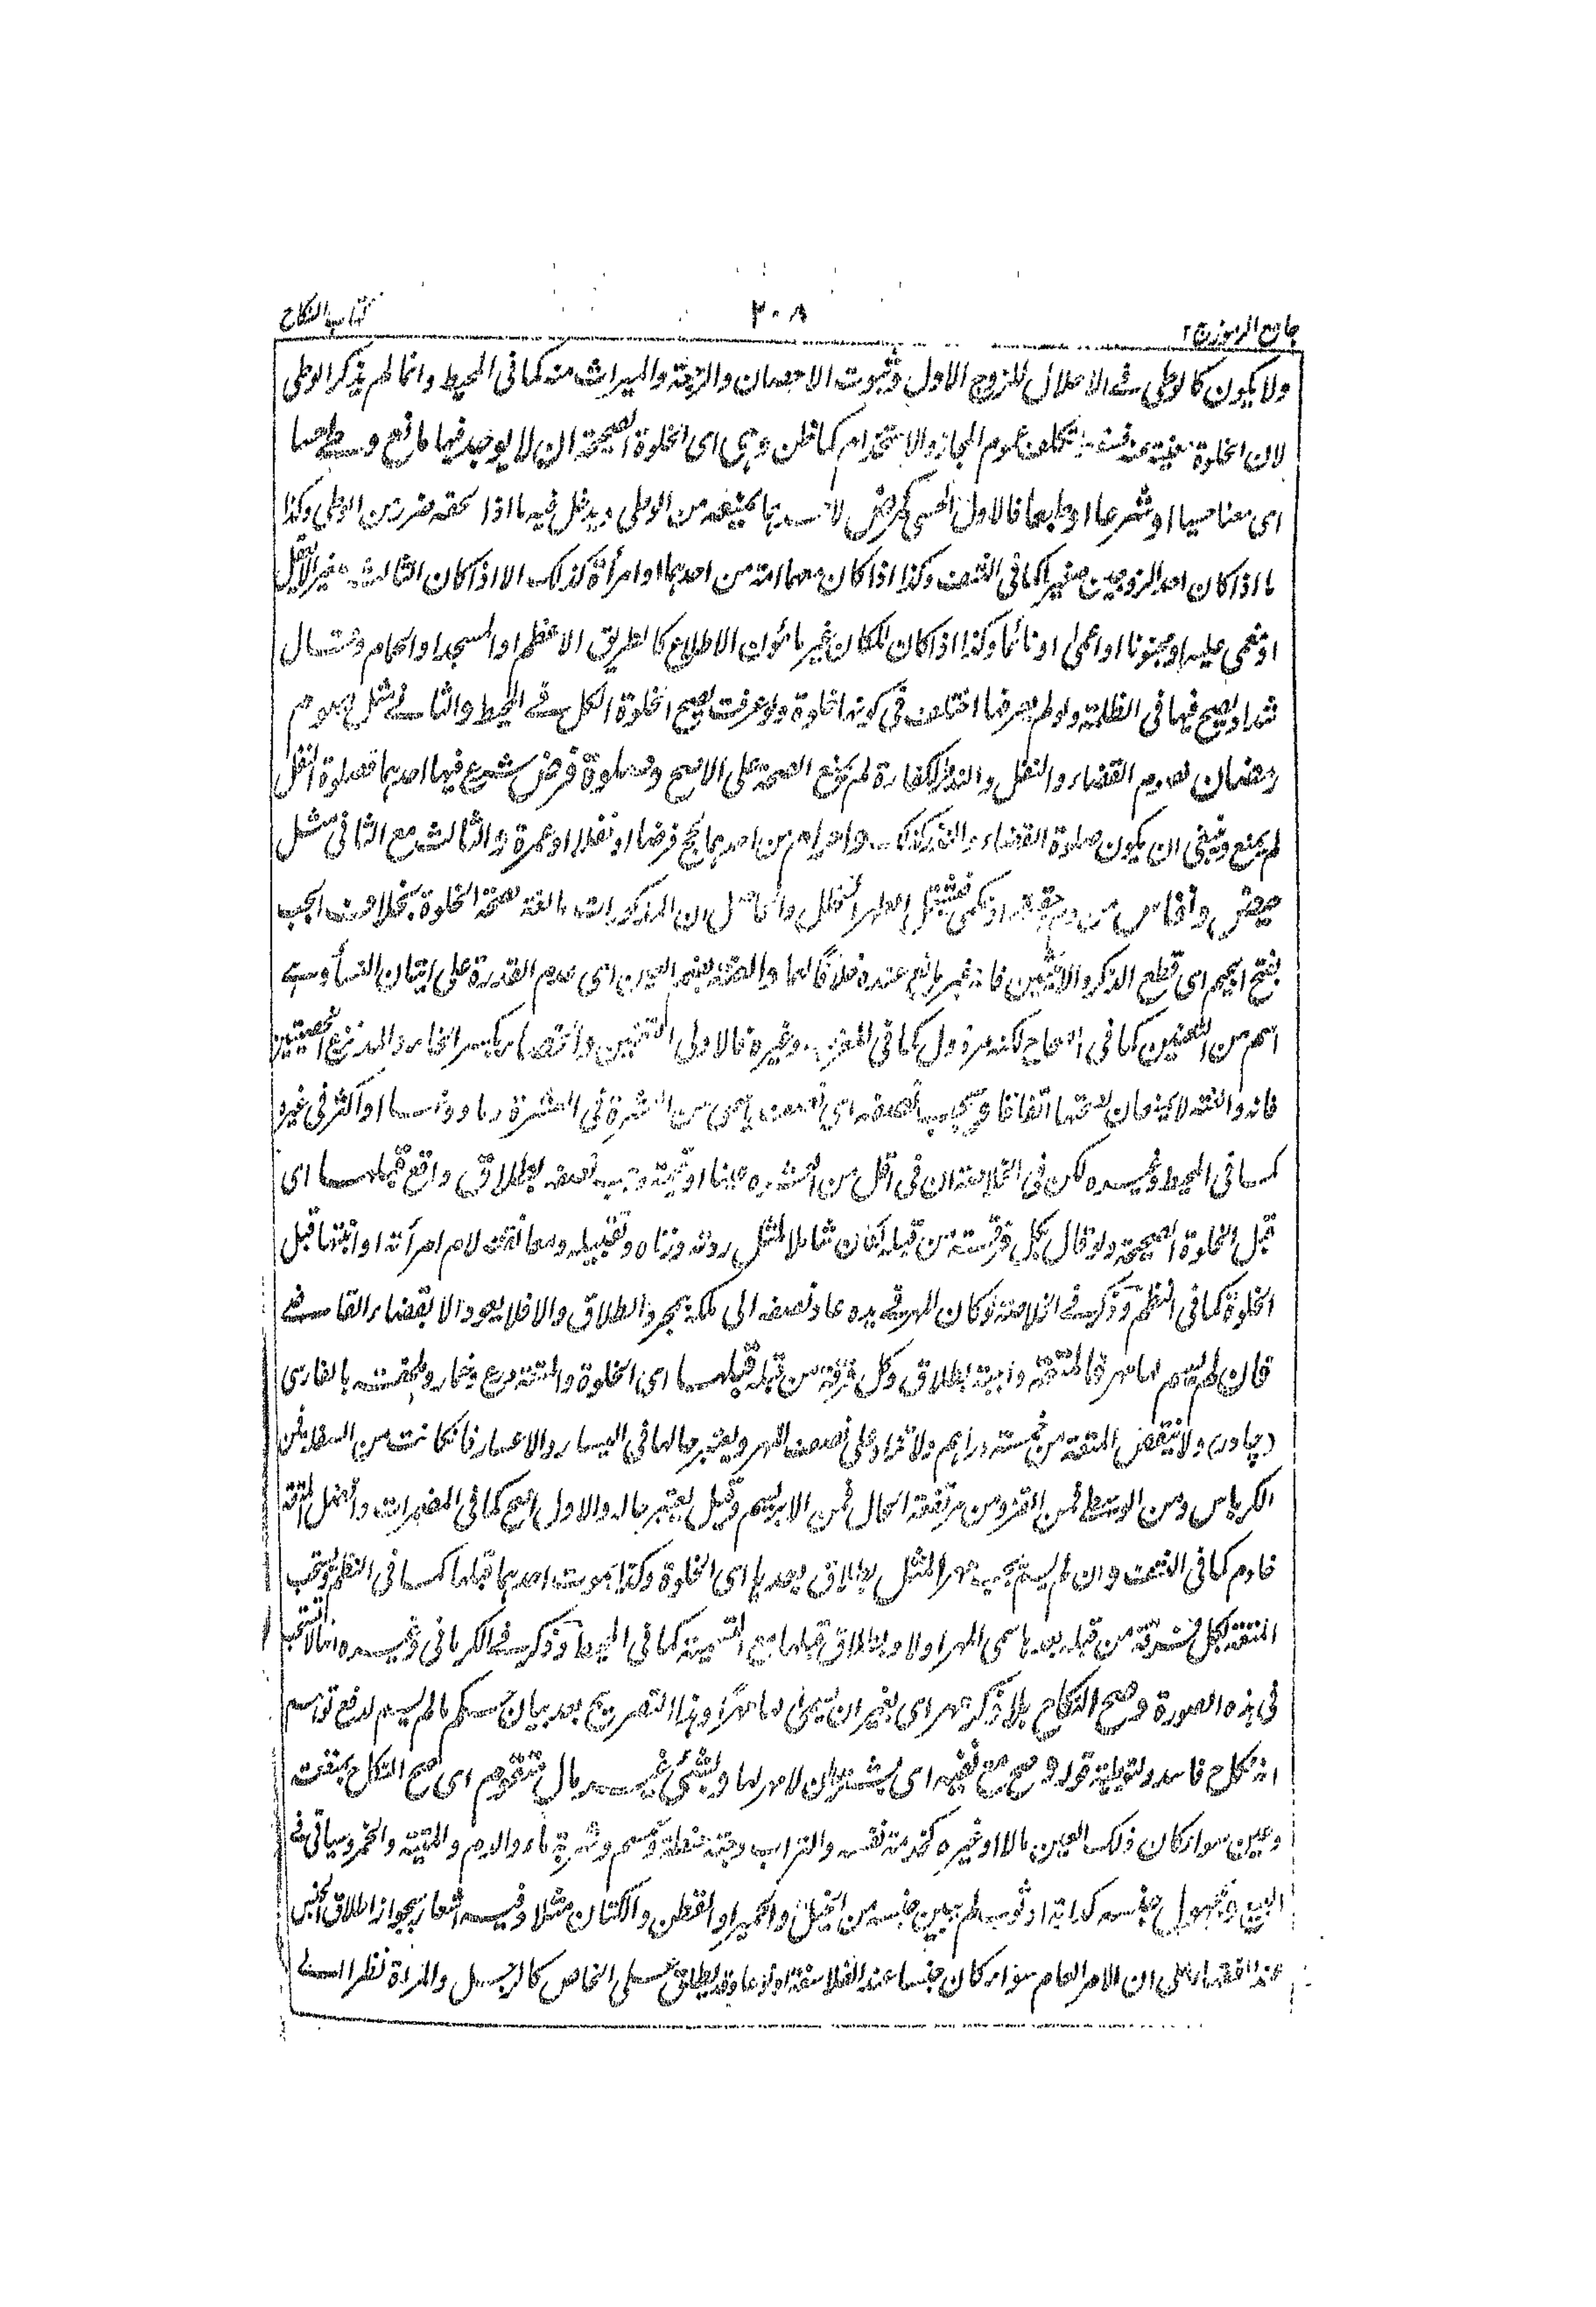 جامع الرموز ج ٢
٢٠٨
كتاب النكاح
ولا يكون كالوطي في الاحلال للزوج الاول وثبوت الاحصان والرجعة والميراث منه كما في المحيط وانما لم يذكر الوطي
لان الخلوة مغنية عنه تكلف عموم المجاز والاستخدام كما ظن وهي اى الخلوة الصحيحة ان لا يوجد فيها مانع وطي حسا
اى معنا حسيا او شرعا او طبعا فالاول الحسي كمرض لاحدهما يمنعه من الوطي ويدخل فيه ما اذا لحقه ضرر من الوطي وكذا
ما اذا كان احد الزوجين صغيرا كما في النتف وكذا اذا كان معهما امة من احدهما او امرأة كذلك الا اذا كان الثالث صغير لا يعقل
او مغمى عليه او مجنونا او اعمى او نائما وكذا اذا كان المكان غير مامون الاطلاع كالطريق الاعظم او المسجد او الحمام وقال
شداد يصح فيها في الظلمة ولو لم يعرفها اختلف في كونها خلوة ولو عرفت يصح الخلوة الكل في المحيط والثاني مثل صوم
رمضان فصوم القضاء والنفل والنذر والكفارة لم يمنع الصحة على الاصح وصلوة فرض شرع فيها احدهما فصلوة النفل
لم يمنع وينبغي ان يكون صلوة القضاء والنذر كذلك واحرام من احدهما بحج فرضا او نفلا او عمرة والثالث مع الثاني مثل
حيض ونفاس من حقيقة او حكمي فيشتمل الطهر المتخلل والحاصل ان المذكورات مانعة لصحة الخلوة بخلاف الجب
بفتح الجيم اى قطع الذكر والانثيين فانه غير مانع عنده خلافا لهما والعنة بضم العين اى عدم القدرة على اتيان النساء وهي
اسم من التعنين كما في الصحاح لكنه مرذول كما في المغرب وغيره فالاولى التعنين والخصاء بكسر الخاء والمد نزع الخصيتين
فانه والعنة لا يمنعان صحتها اتفاقا ويجب نصفه اى نصف ما سمى من العشرة في العشرة دراهم او اكثر في غيره
كما في المحيط وغيره لكن في الخلاصة ان في اقل من العشرة عينا او قيمة وجب نصفه بطلاق واقع قبلها اى
قبل الخلوة الصحيحة ولو قال بكل فرقة من قبله لكان شاملا لمثل ردته وزناه وتقبيله ومعانقته لام امرأته او ابنتها قبل
الخلوة كما في النظم وذكر في الخلاصة لو كان المهر في يده عاد نصفه الى ملكه بمجرد الطلاق والا فلا يعود الا بقضاء القاضي
فان لم يسم لها مهر فالمتعة واجبة بطلاق وكل فرقة من قبله قبلها اى الخلوة والمتعة درع وخمار وملحفة بالفارسي
(چادر) ولا ينقص المتعة من خمسة دراهم ولا تزاد على نصف المهر ويعتبر حالها في اليسار والاعسار فان كانت من السفلة فمن
الكرباس ومن الوسط فمن القز ومن مرتفعة الحال فمن الابريسم وقيل يعتبر حاله والاول اصح كما في المضمرات وافضل المتعة
خادم كما في النتف وان لم يسم يجب مهر المثل بطلاق بعدها اى الخلوة وكذا بموت احدهما قبلها كما في النظم وتستحب
المتعة لكل فرقة من قبله بعد ما سمى المهر اولا وبطلاق قبلها مع التسمية كما في المحيط وذكر في الكرماني وغيره انها لا تستحب
في هذه الصورة وصح النكاح بلا ذكر مهر اى بغير ان يسمى لها مهرا وهذا التصريح بعد بيان حكم ما لم يسم لدفع توهم
انه نكاح فاسد ولتوطية قوله وصح مع نفيه اى بشرط ان لا مهر لها وبشئ غير مال متقوم اى صح النكاح بمنفعة
وعين سواء كان ذلك العين مالا او غيره كخدمة نفسه والتراب وحبة حنطة وسمسم وشربة ماء والدم والميتة والخمر وسياتي في
البيع وبمجهول جنسه كدابة او ثوب لم يبين جنسه من الخيل والحمير او القطن والكتان مثلا وفيه اشعار بجواز اطلاق الجنس
عند الفقهاء على ان الامر العام سواء كان جنسا عند الفلاسفة او نوعا وقد يطلق على الخاص كالرجل والمراة نظرا الى